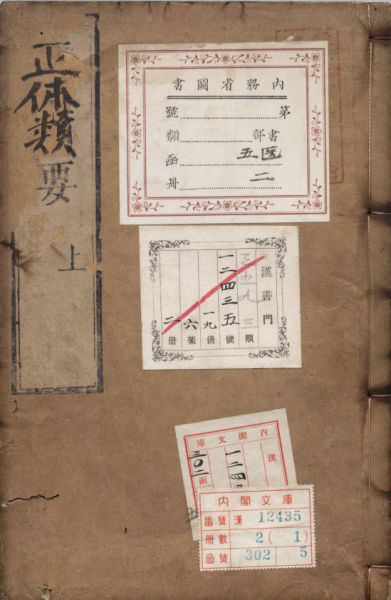 正体類要
上
內務省圖書
第
號
書部
類
医
五
函
二
冊
漢書門
類
一二四三五
號
一九
函
六
架
二
冊
內閣文庫
漢
三〇二
函
內閣文庫
番號 漢 12435
冊數 2 ( 1 )
函號 302 5